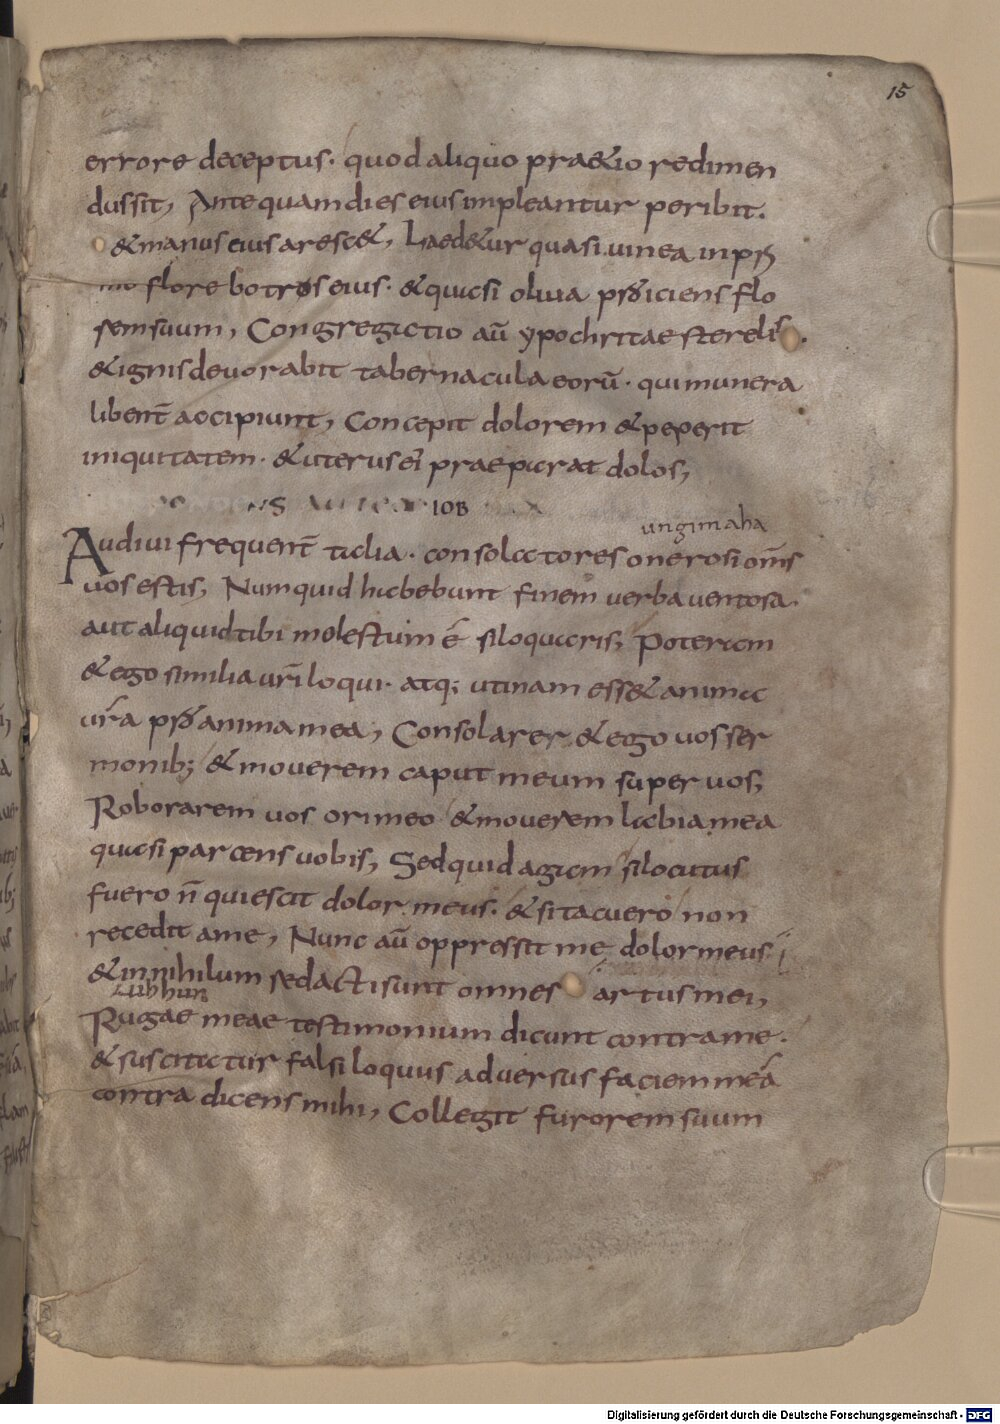 15
errore deceptus· quod aliquo pra&io redimen
dus sit, Ante quam dies eius impleantur peribit.
& manus eius aresc&, Laed&ur quasi uinea in pri
mo flore botros eius· & quasi oliua proiciens flo
rem suum, Congregatio aū ypochritae sterelis.
& ignis deuorabit tabernacula eorū· qui munera
libent̄ accipiunt, Concepit dolorem & peperit
iniquitatem· & uterus ei praeparat dolos,
IOB
ungimaha
Audiui frequent̄ talia· consolatores onerosi om̄s
uos estis, Numquid habebunt finem uerba uentosa.
aut aliquid tibi molestum ē si loquaris, Poteram
& ego similia ur̄i loqui· atq; utinam ess& anima
ur̄a pro anima mea, Consolarer & ego uos ser
monib; & mouerem caput meum super uos,
Roborarem uos ori meo & mouerem labia mea
quasi parcens uobis, Sed quid agam si locutus
fuero n̄ quiescit dolor meus. & si tacuero non
recedit a me, Nunc aū oppressit me dolor meus
& in nihilum redacti sunt omnes artus mei,
Rugae meae testimonium dicunt contra me·
& suscitatur falsiloquus aduersus faciem meā
contra dicens mihi, Collegit furorem suum
Digitalisierung gefördert durch die Deutsche Forschungsgemeinschaft - DFG